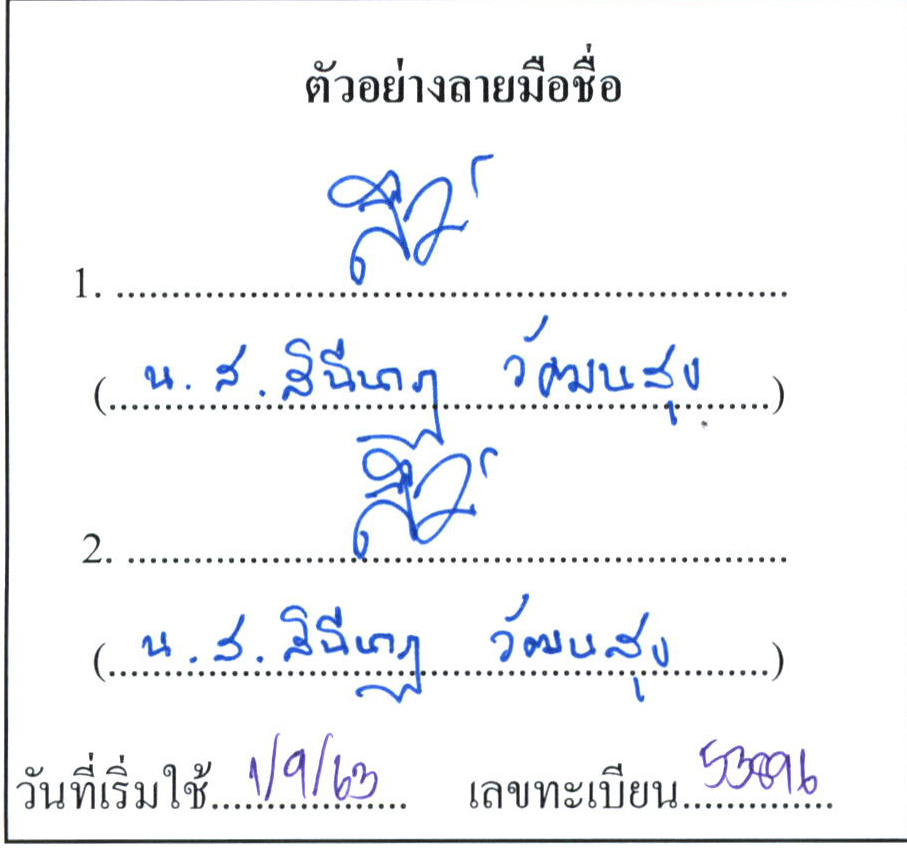 ตัวอย่างลายมือชื่อ
1. ............................................................
( น.ส. สินีนาฏ วัฒนสุข )
2. ............................................................
( น.ส. สินีนาฏ วัฒนสุข )
วันที่เริ่มใช้ 1/9/63 เลขทะเบียน 53896